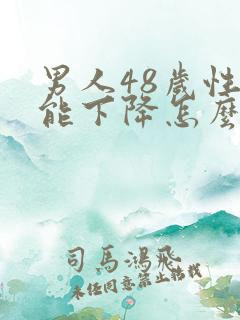 男人48歲性
能下降怎麼
司馬鴻飛
未经同意禁止转载